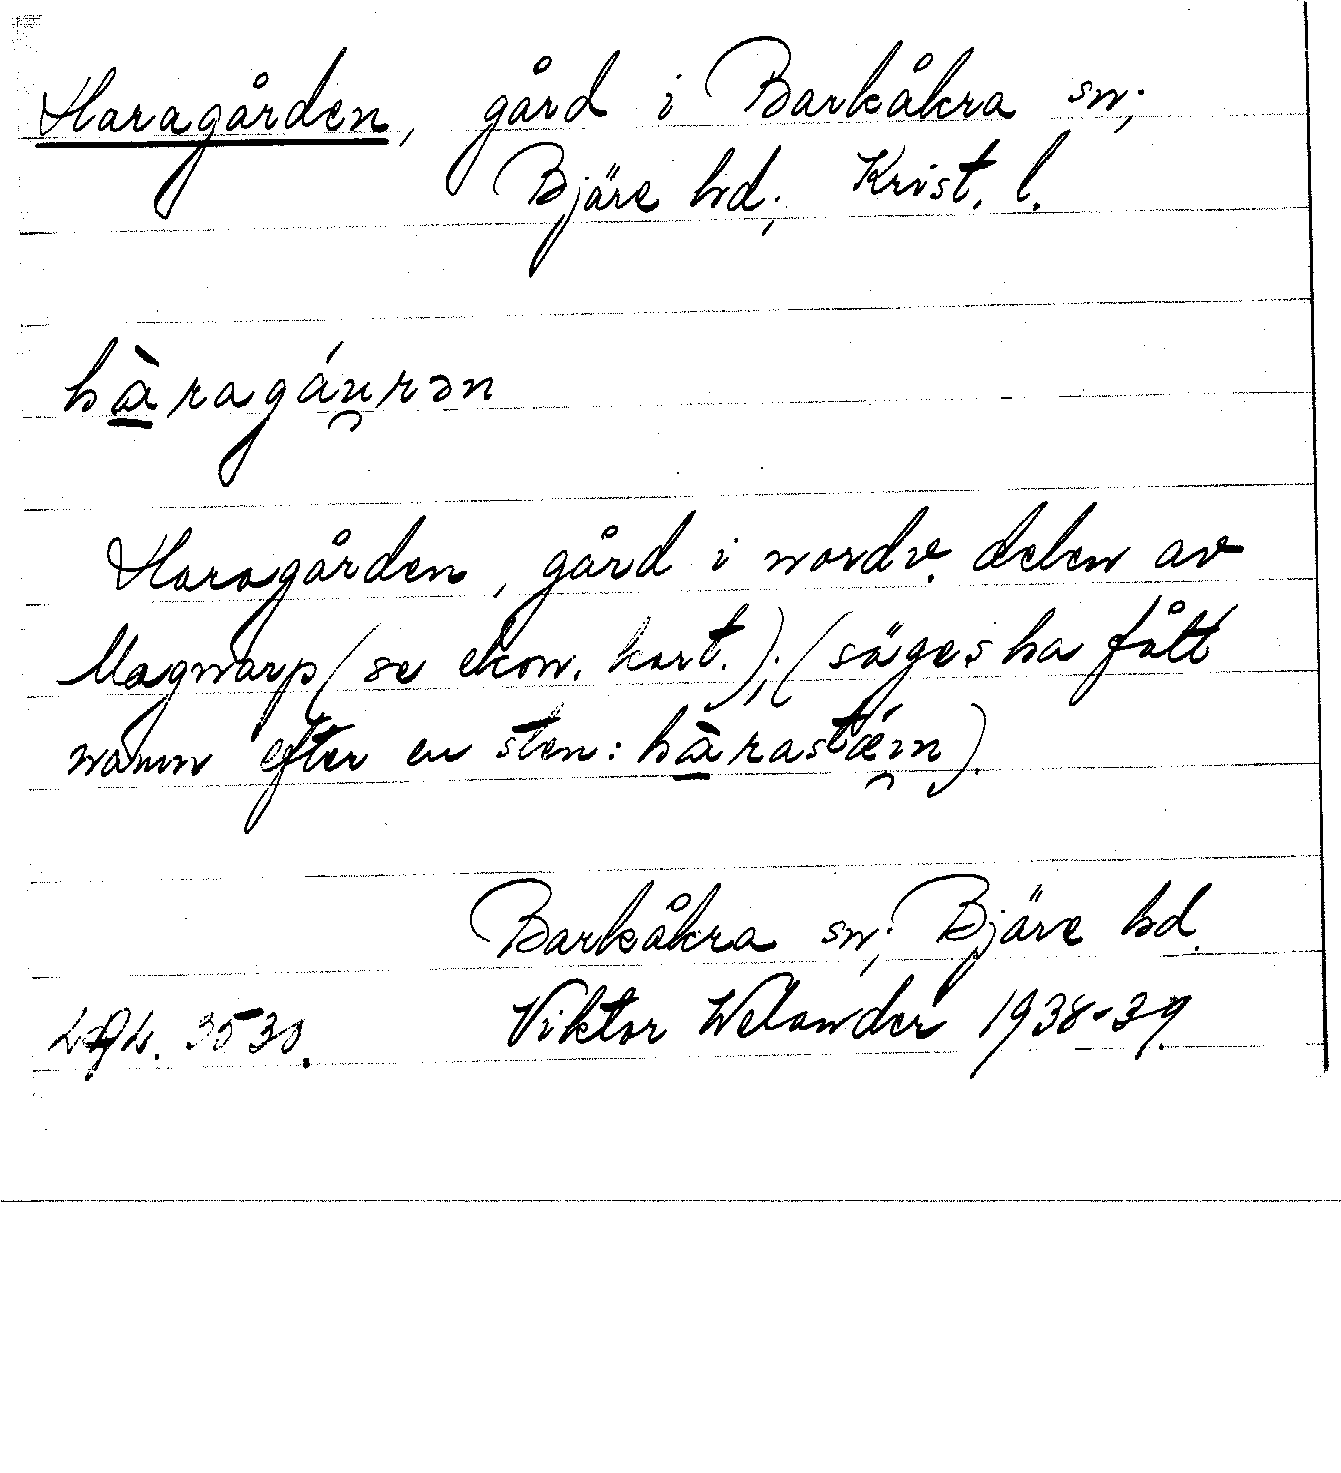 Haragården, gård i Barkåkra sn;
Bjäre hd; Krist. l.
hàragáu̯rən
Haragården, gård i nordv. delen av
Magnarp (se ekon. kart.); (säges ha fått
namn efter en sten: hàrastǽi̯n).
Barkåkra sn; Bjäre hd.
LAL. 3530. Viktor Welander 1938-39.